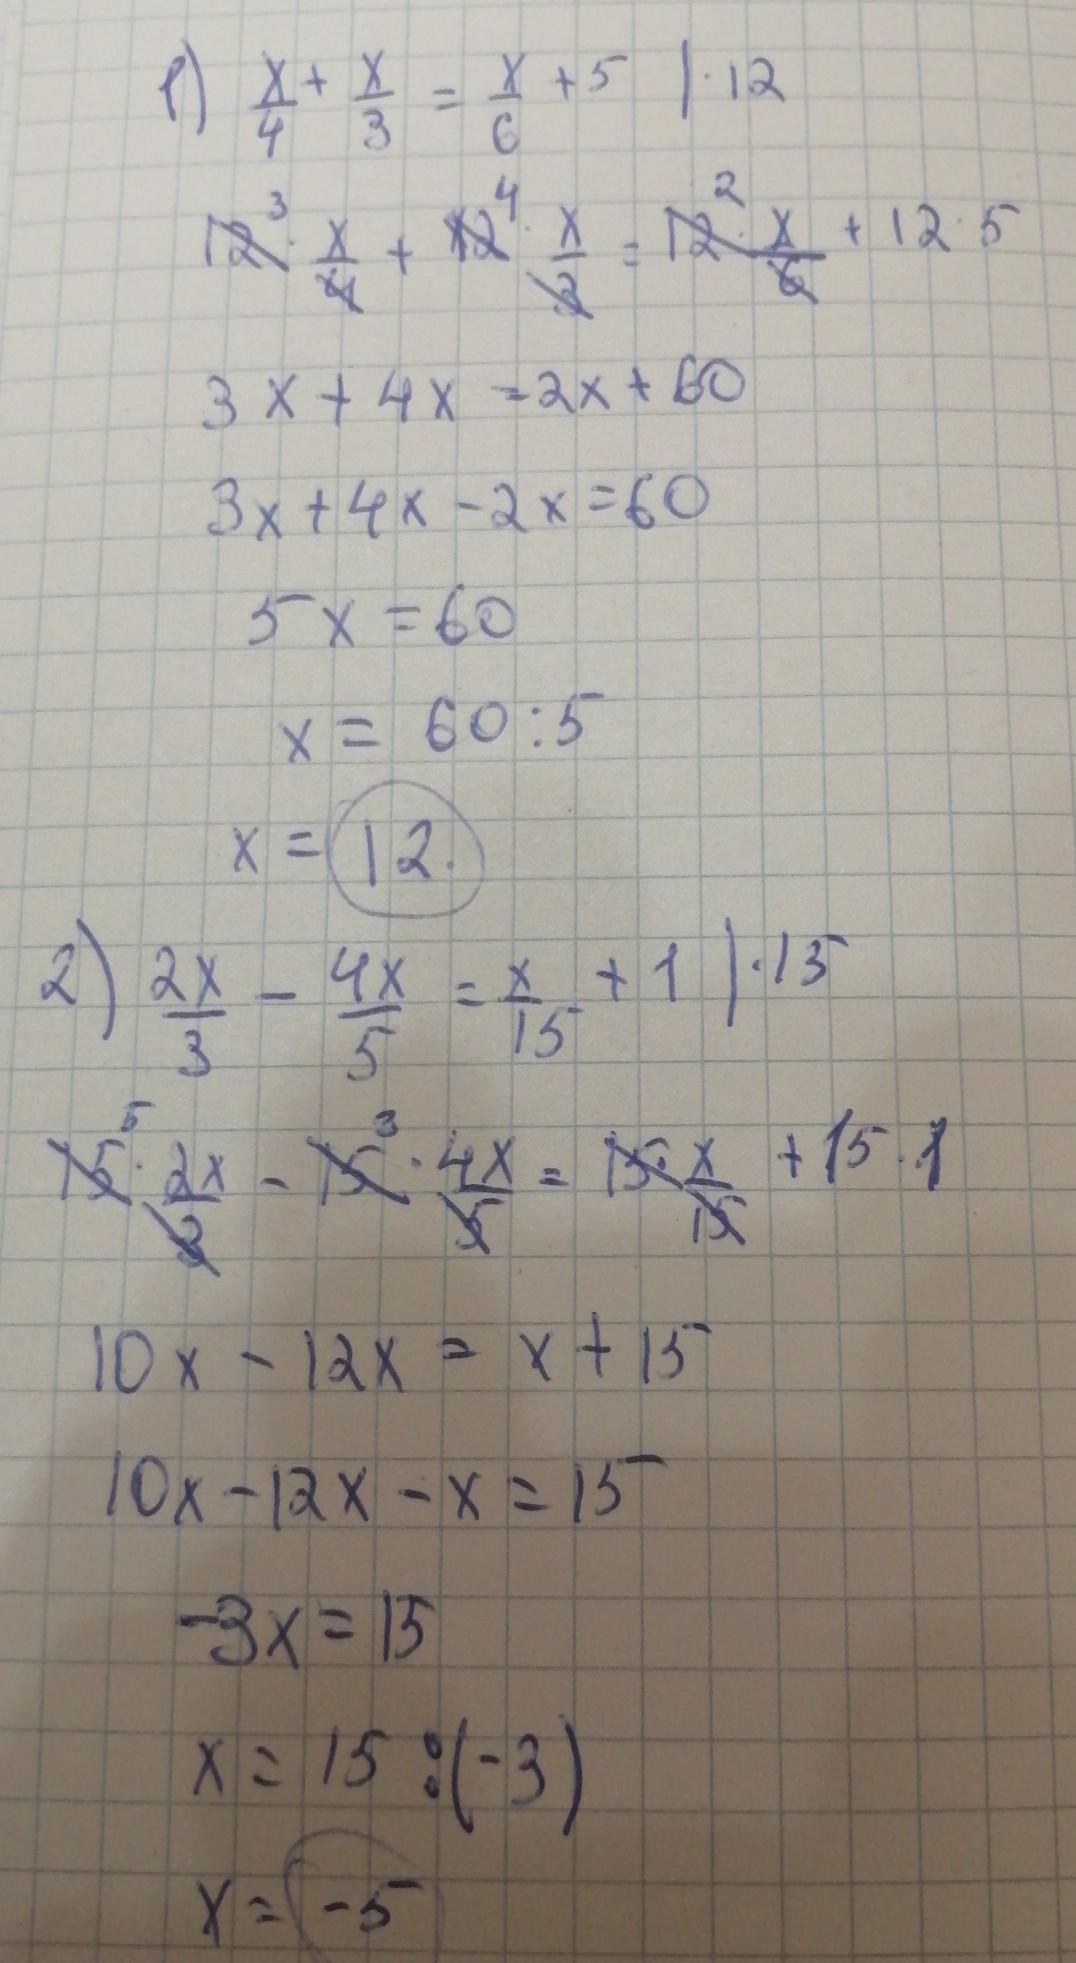 1) x/4 + x/3 = x/6 + 5 | · 12
12³ · x/4 + 12⁴ · x/3 = 12² · x/6 + 12 · 5
3x + 4x = 2x + 60
3x + 4x - 2x = 60
5x = 60
x = 60 : 5
x = 12.
2) 2x/3 - 4x/5 = x/15 + 1 | · 15
15⁵ · 2x/3 - 15³ · 4x/5 = 15 · x/15 + 15 · 1
10x - 12x = x + 15
10x - 12x - x = 15
-3x = 15
x = 15 : (-3)
x = -5